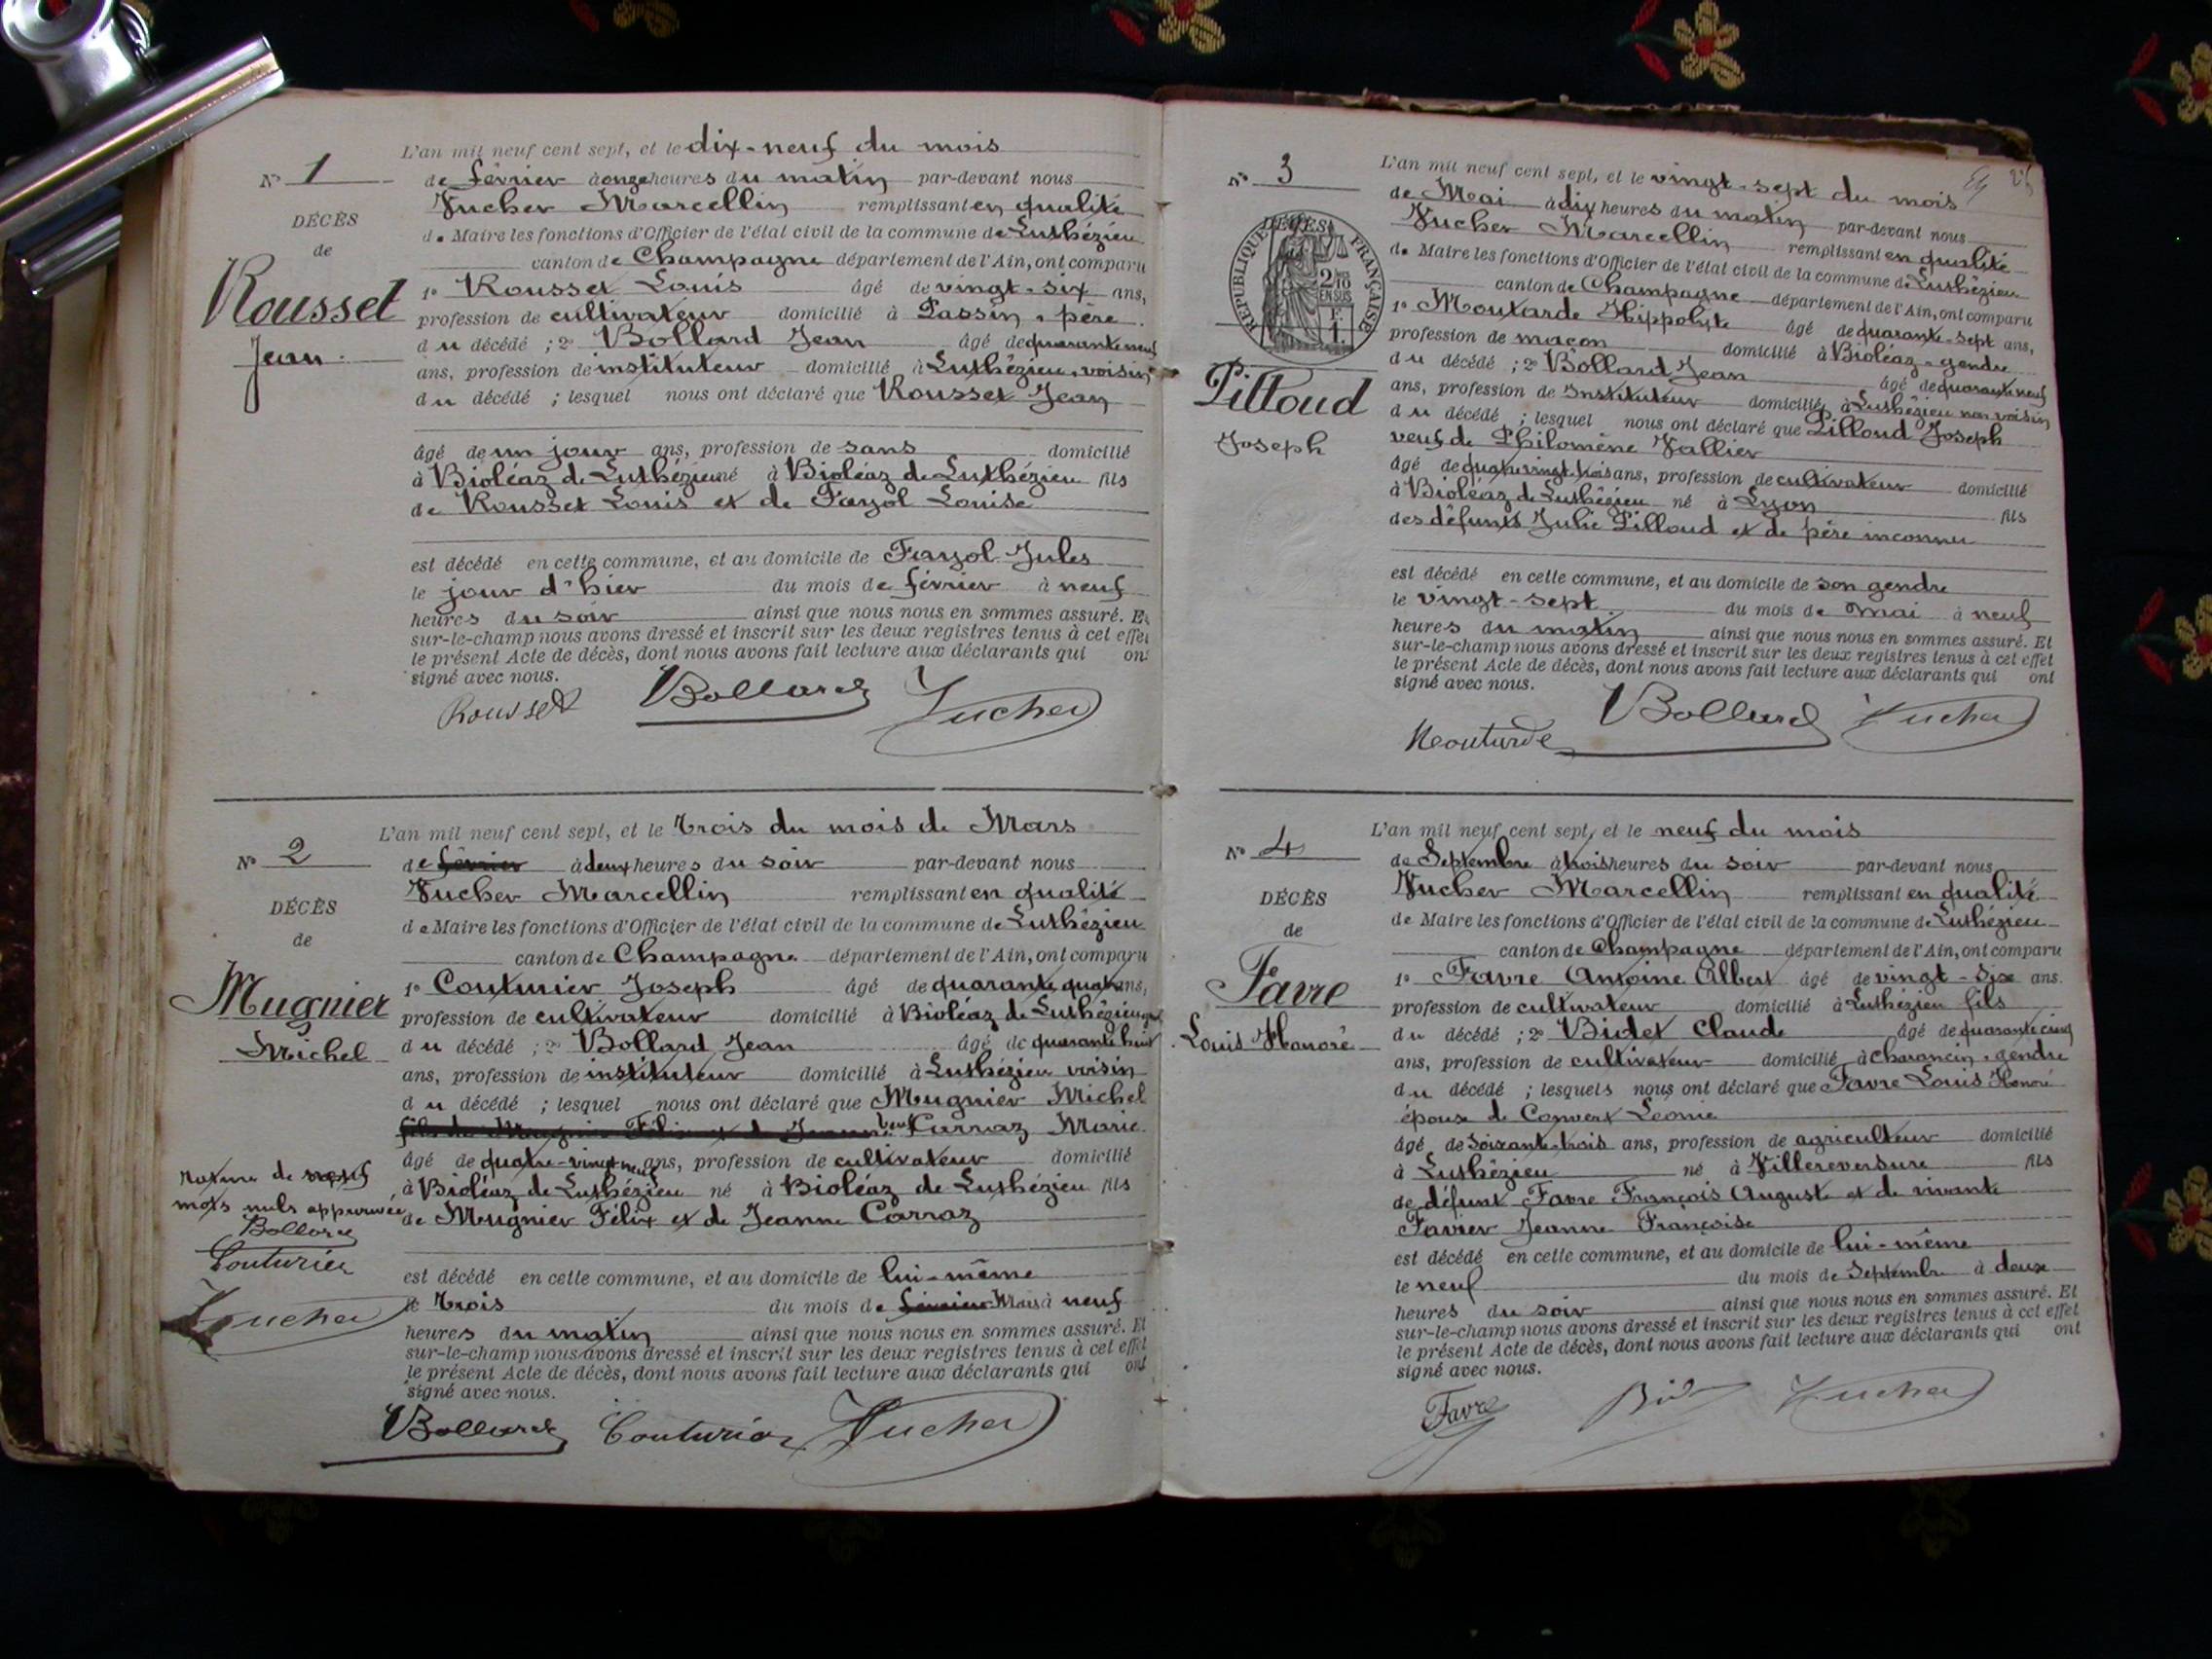 N° 1
DÉCÈS
de
Rousset
Jean
L'an mil neuf cent sept, et le dix-neuf du mois
de février à onze heures du matin par-devant nous
Vucher Marcellin remplissant en qualité
de Maire les fonctions d'Officier de l'état civil de la commune de Luthézieu
canton de Champagne département de l'Ain, ont comparu
1° Rousset Louis âgé de vingt-six ans,
profession de cultivateur domicilié à Passin, père
du décédé ; 2° Bollard Jean âgé de quarante neuf
ans, profession de instituteur domicilié à Luthézieu, voisin
du décédé ; lesquel nous ont déclaré que Rousset Jean
âgé de un jour ans, profession de sans domicilié
à Bioléaz de Luthézieu né à Bioléaz de Luthézieu fils
de Rousset Louis et de Fayol Louise
est décédé en cette commune, et au domicile de Fayol Jules
le jour d'hier du mois de février à neuf
heures du soir ainsi que nous nous en sommes assuré. Et
sur-le-champ nous avons dressé et inscrit sur les deux registres tenus à cet effet
le présent Acte de décès, dont nous avons fait lecture aux déclarants qui ont
signé avec nous.
Rousset Bollard Vucher
N° 2
DÉCÈS
de
Mugnier
Michel
Rature de neuf
mots nuls approuvée
Bollard
Couturier
Vucher
L'an mil neuf cent sept, et le trois du mois de Mars
de février à deux heures du soir par-devant nous
Vucher Marcellin remplissant en qualité
de Maire les fonctions d'Officier de l'état civil de la commune de Luthézieu
canton de Champagne département de l'Ain, ont comparu
1° Couturier Joseph âgé de quarante quatre ans,
profession de cultivateur domicilié à Bioléaz de Luthézieu
du décédé ; 2° Bollard Jean âgé de quarante huit
ans, profession de instituteur domicilié à Luthézieu voisin
du décédé ; lesquel nous ont déclaré que Mugnier Michel
fils de Mugnier Félix et de Jeanne veuf Carraz Marie
âgé de quatre-vingt-neuf ans, profession de cultivateur domicilié
à Bioléaz de Luthézieu né à Bioléaz de Luthézieu fils
de Mugnier Félix et de Jeanne Carraz
est décédé en cette commune, et au domicile de lui-même
le trois du mois de février Mars à neuf
heures du matin ainsi que nous nous en sommes assuré. Et
sur-le-champ nous avons dressé et inscrit sur les deux registres tenus à cet effet
le présent Acte de décès, dont nous avons fait lecture aux déclarants qui ont
signé avec nous.
Bollard Couturier Vucher
N° 3
RÉPUBLIQUE FRANÇAISE
2/10
EN SUS
Pilloud
Joseph
L'an mil neuf cent sept, et le vingt-sept du mois
de Mai à dix heures du matin par-devant nous
Vucher Marcellin remplissant en qualité
de Maire les fonctions d'Officier de l'état civil de la commune de Luthézieu
canton de Champagne département de l'Ain, ont comparu
1° Moutarde Hippolyte âgé de quarante-sept ans,
profession de maçon domicilié à Bioléaz, gendre
du décédé ; 2° Bollard Jean âgé de quarante neuf
ans, profession de Instituteur domicilié à Luthézieu non voisin
du décédé ; lesquel nous ont déclaré que Pilloud Joseph
veuf de Philomène Vallier
âgé de quatre vingt-trois ans, profession de cultivateur domicilié
à Bioléaz de Luthézieu né à Lyon fils
des défunts Julie Pilloud et de père inconnu
est décédé en cette commune, et au domicile de son gendre
le vingt-sept du mois de mai à neuf
heures du matin ainsi que nous nous en sommes assuré. Et
sur-le-champ nous avons dressé et inscrit sur les deux registres tenus à cet effet
le présent Acte de décès, dont nous avons fait lecture aux déclarants qui ont
signé avec nous.
Moutarde Bollard Vucher
N° 4
DÉCÈS
de
Favre
Louis Honoré
L'an mil neuf cent sept, et le neuf du mois
de Septembre à trois heures du soir par-devant nous
Vucher Marcellin remplissant en qualité
de Maire les fonctions d'Officier de l'état civil de la commune de Luthézieu
canton de Champagne département de l'Ain, ont comparu
1° Favre Antoine Albert âgé de vingt-six ans.
profession de cultivateur domicilié à Luthézieu fils
du décédé ; 2° Bidet Claude âgé de quarante cinq
ans, profession de cultivateur domicilié à Charancin, gendre
du décédé ; lesquels nous ont déclaré que Favre Louis Honoré
époux de Convert Léonie
âgé de soixante-trois ans, profession de agriculteur domicilié
à Luthézieu né à Villereversure fils
de défunt Favre François Auguste et de vivante
Favier Jeanne Françoise
est décédé en cette commune, et au domicile de lui-même
le neuf du mois de Septembre à deux
heures du soir ainsi que nous nous en sommes assuré. Et
sur-le-champ nous avons dressé et inscrit sur les deux registres tenus à cet effet
le présent Acte de décès, dont nous avons fait lecture aux déclarants qui ont
signé avec nous.
Favre Vucher